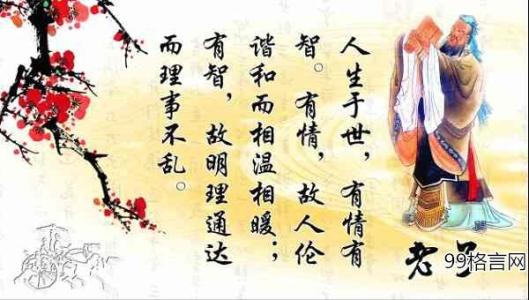 人生于世，有情有
智。有情，故人伦
谐和而相温相暖；
有智，故明理通达
而理事不乱。
老子
99格言网